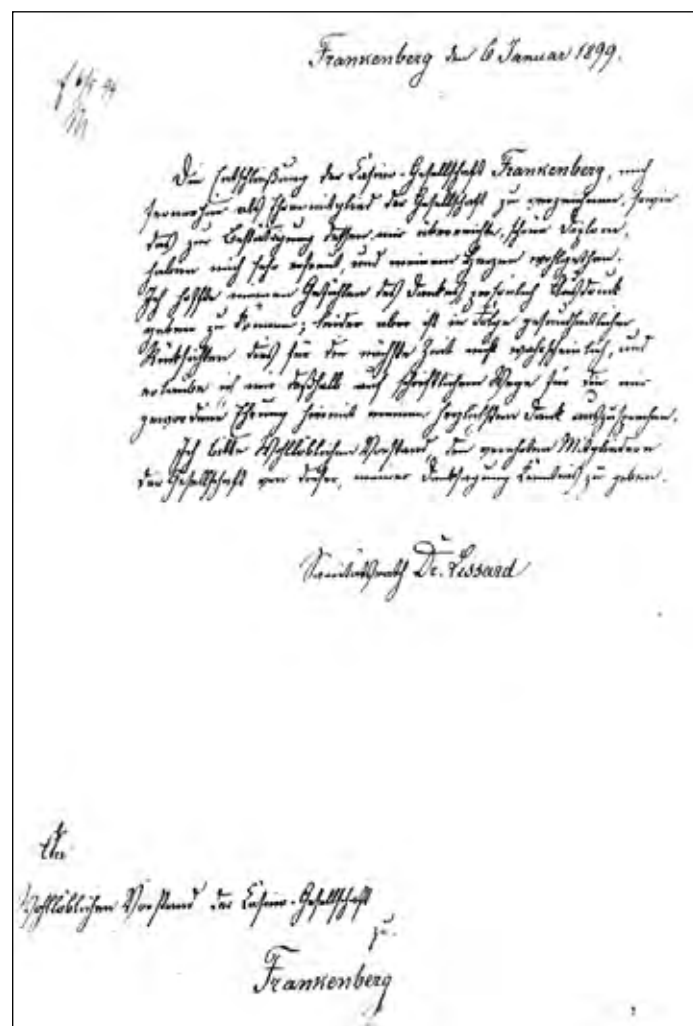 Frankenberg den 6 Januar 1899.
Die Entschließung der Casino-Gesellschaft Frankenberg, mich
fernerhin als Ehrenmitglied der Gesellschaft zu verzeichnen, sowie
das zur Bestätigung dessen mir überreichte, schöne Diplom,
haben mich sehr erfreut, und meinem Herzen wohlgethan.
Ich hoffte meinen Gefühlen des Dankes persönlich Ausdruck
geben zu können; leider aber ist in Folge gesundheitlicher
Rücksichten dies für die nächste Zeit nicht wahrscheinlich, und
erlaube ich mir deßhalb auf schriftlichem Wege für die mir
gewordene Ehrung hiermit meinen herzlichsten Dank auszusprechen.
Ich bitte Wohllöblichen Vorstand, den verehrten Mitgliedern
der Gesellschaft von dieser, meiner Danksagung Kenntniß zu geben.
Sanitätsrath Dr. Lissard
An
Wohllöblichen Vorstand der Casino-Gesellschaft
zu.
Frankenberg